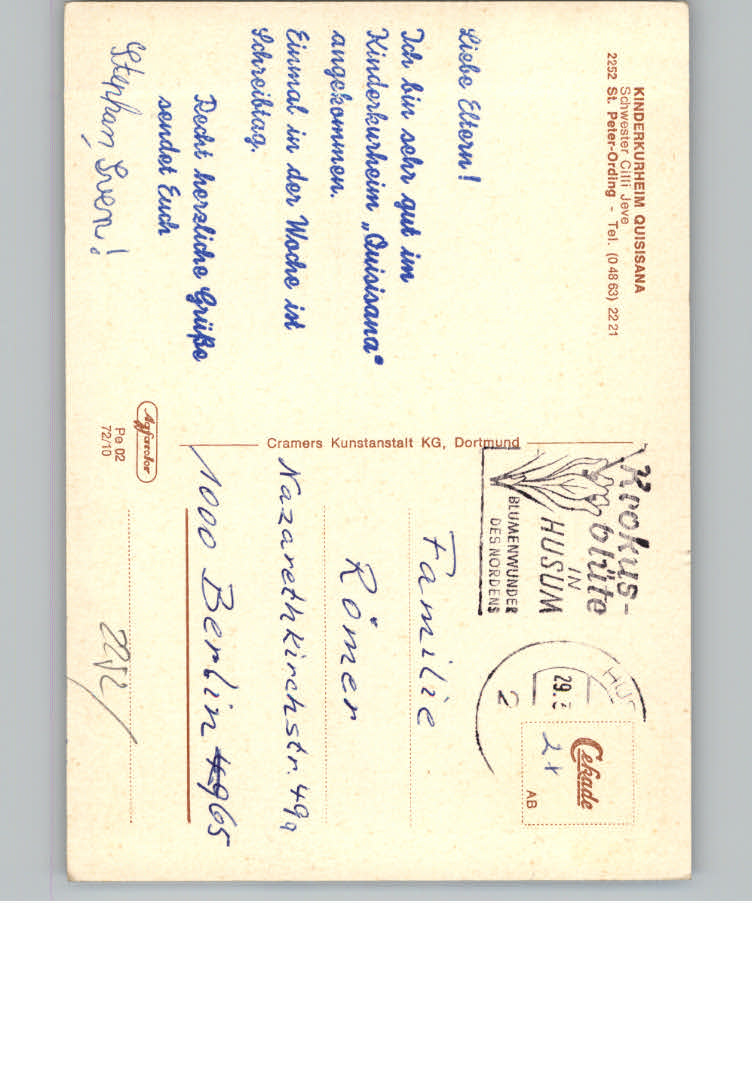 KINDERKURHEIM QUISISANA
Schwester Cilli Jeve
2252 St. Peter-Ording - Tel. (0 48 63) 22 21
Liebe Eltern!
Ich bin sehr gut im
Kinderkurheim „Quisisana“
angekommen.
Einmal in der Woche ist
Schreibtag.
Recht herzliche Grüße
sendet Euch
Stephan, Sven!
Agfacolor
Pe 02
72/10
Cramers Kunstanstalt KG, Dortmund
Krokus-
blüte
IN
HUSUM
BLUMENWUNDER
DES NORDENS
HUS
29.3
2
Cekade
2x
AB
Familie
Römer
Nazarethkirchstr. 49a
1000 Berlin 65
2252